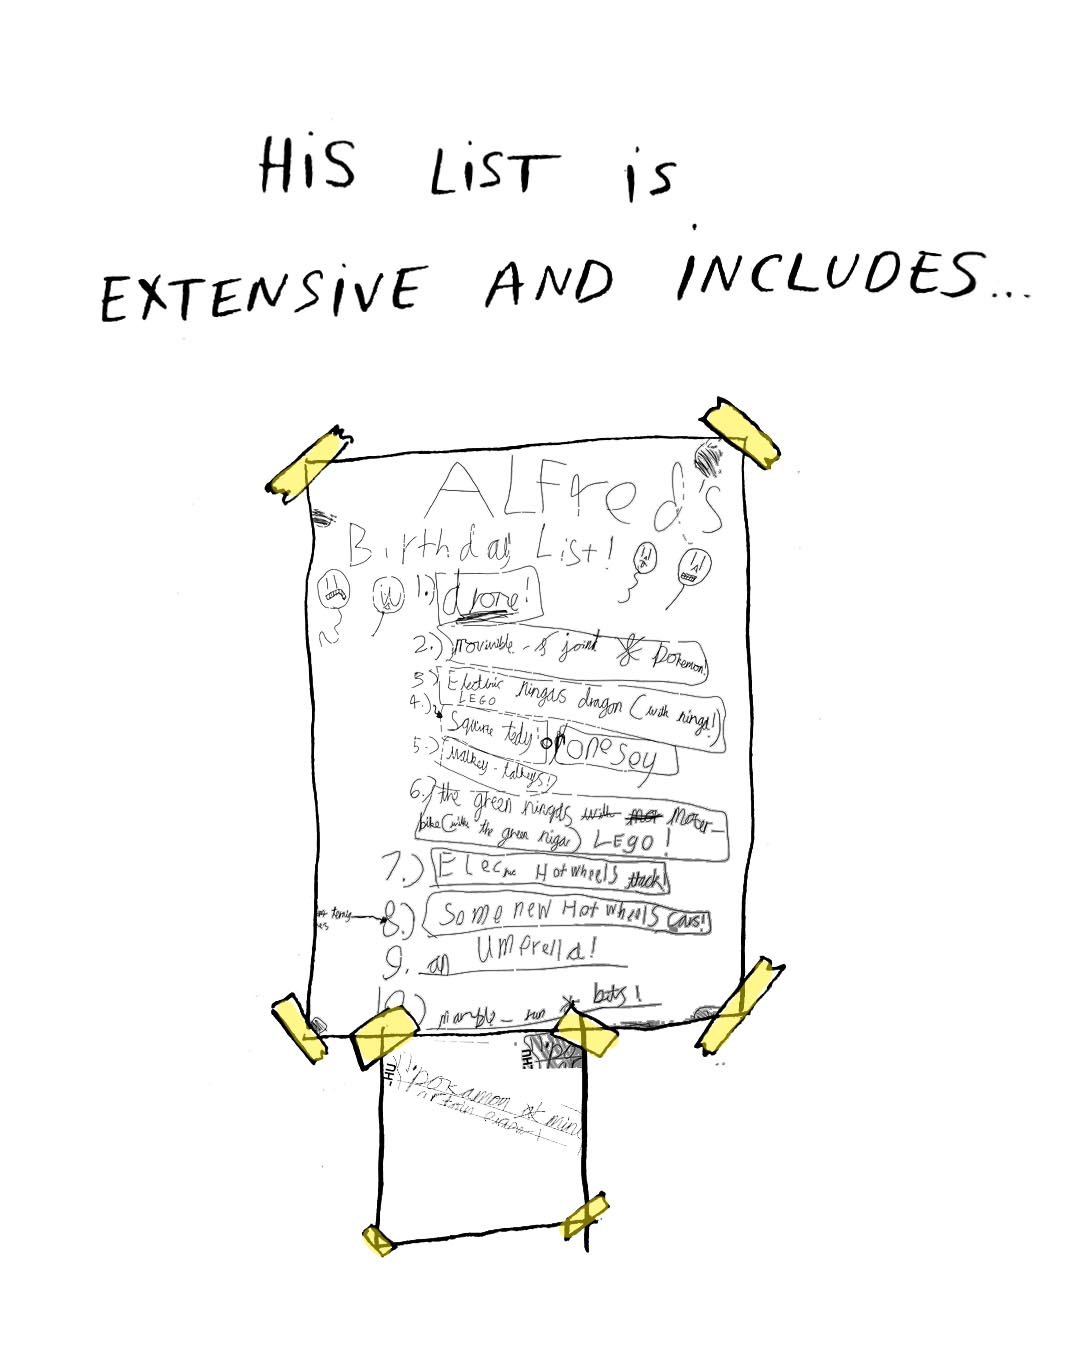 HiS LiST is
EXTENSiVE AND iNCLUDES...
ALFred's
Birthday List!
1.) drone!
2.) movinble - & joint Pokemon!
3) Electric ningas dragon (with ninga!)
LEGO
4.) Square tedy or onesey
5.) walkey - talkeys!
6.) the green ningas with mot Moter-
bike (with the green niga) LEGO!
7.) Elec Hot wheels track!
8.) Some new Hot wheels cars!
9. an UmPrella!
10.) marple - run bits!
11. pokamon mini